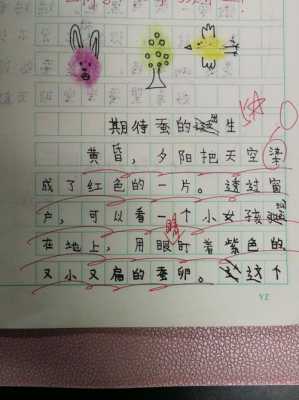 期待蚕的诞生
黄昏，夕阳把天空染
成了红色的一片。透过窗
户，可以看一个小女孩
在地上，用眼盯着紫色的
又小又扁的蚕卵。这个
睛
YZ